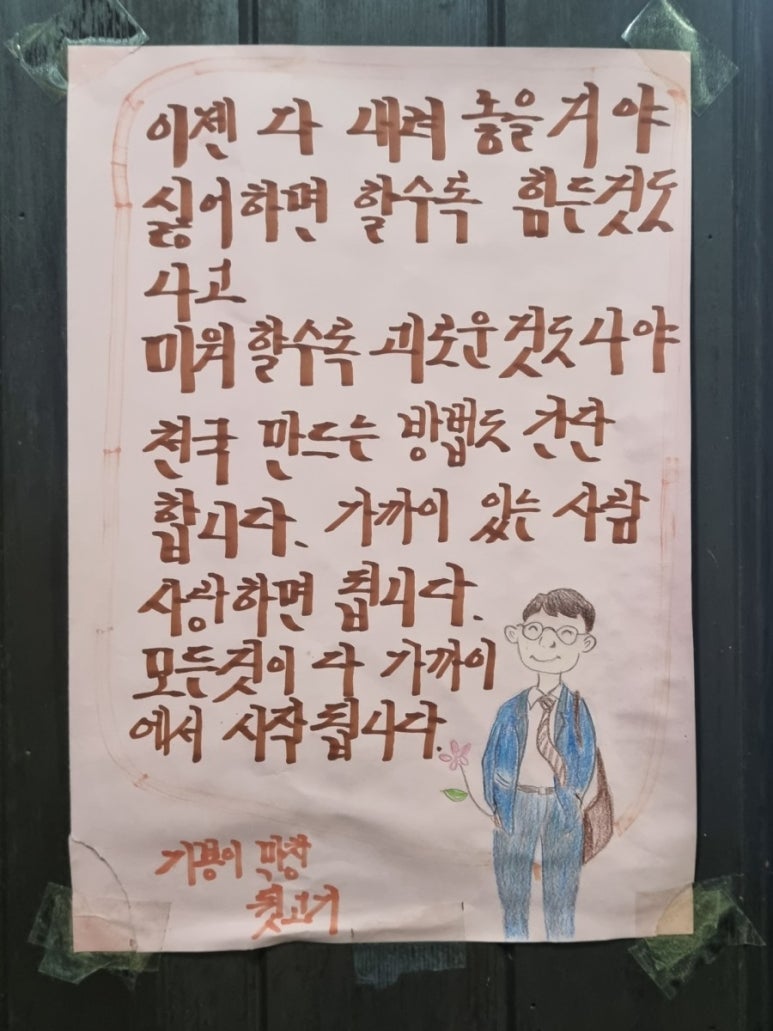 이젠 다 내려 놓을거야
싫어하면 할수록 힘든것도
나고
미워할수록 괴로운것도 나야
천국 만드는 방법도 간단
합니다. 가까이 있는 사람
사랑하면 됩니다.
모든것이 다 가까이
에서 시작됩니다.
막창
뒷고기